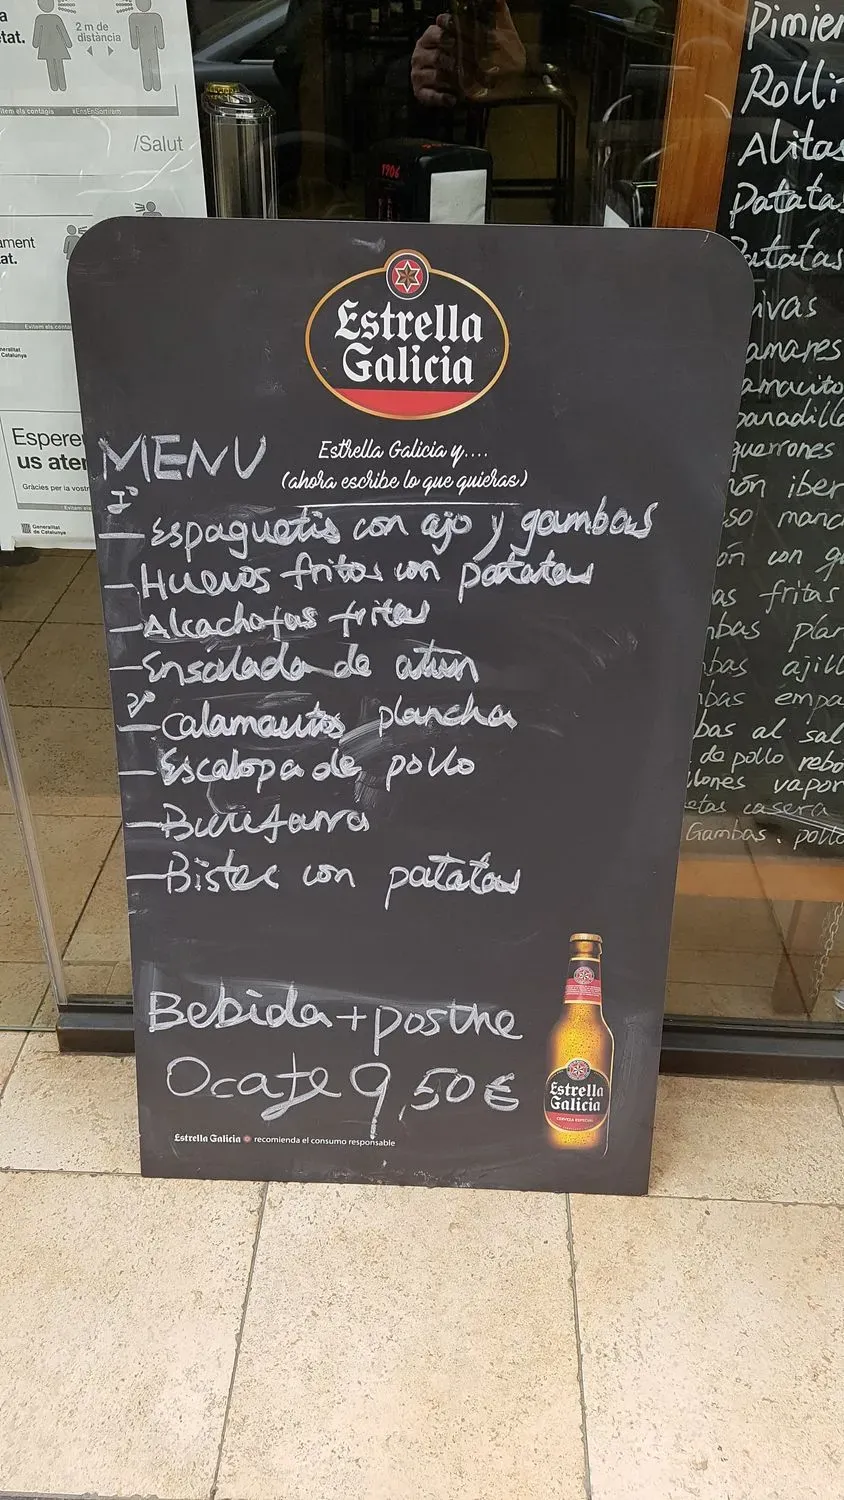 a
tat.
2 m de
distància
item els contagis
#EnsEnSortirem
/Salut
ament
at.
Evitem els conta
Generalitat
de Catalunya
Espere
us aten
Gràcies per la vost
Generalitat
de Catalunya
1906
Estrella
Galicia
Estrella Galicia y....
(ahora escribe lo que quieras)
MENU
1º
- Espaguetis con ajo y gambas
- Huevos fritos con patatas
- Alcachofas fritas
- Ensalada de atun
2º
- calamacitos plancha
- Escalopa de pollo
- Butifarra
- Bistec con patatas
Bebida + postre
O cafe 9,50€
Estrella Galicia recomienda el consumo responsable
Estrella
Galicia
CERVEZA ESPECIAL
Pimien
Rolli
Alitas
Patatas
Patatas
ivas
amares
amacito
panadilla
guerrones
món iber
so manc
ón con q
as fritas
mbas plan
mbas ajill
mbas empa
bas al sal
de pollo rebo
llones vapor
etas casera
Gambas. pollo